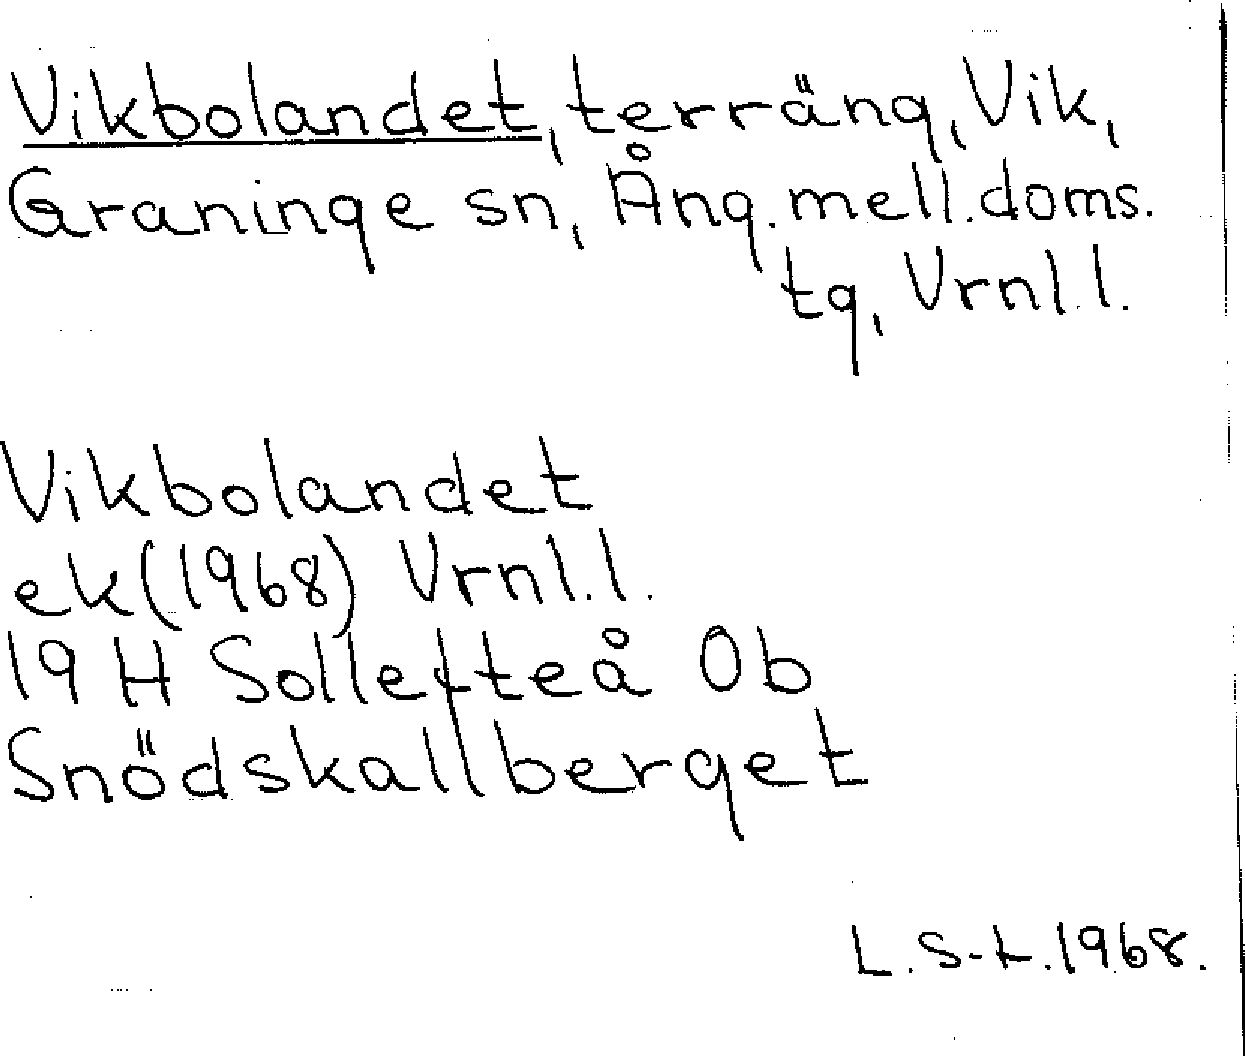 Vikbolandet, terräng, Vik,
Graninge sn, Ång. mell. doms.
tg, Vrnl. l.
Vikbolandet
ek (1968) Vrnl. l.
19 H Sollefteå 0b
Snödskallberget
L. S-t. 1968.